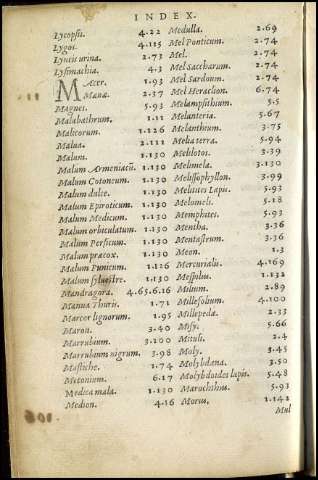 INDEX.
Lycopsis. 4.22
Lygos. 4.115
Lyncis urina. 2.73
Lysimachia. 4.3
MAcer. 1.93
Mana. 2.37
Magnes. 5.93
Malabathrum. 1.11
Malicorum. 1.126
Malua. 2.111
Malum. 1.130
Malum Armeniacũ. 1.130
Malum Cotoneum. 1.130
Malum dulce. 1.130
Malum Epiroticum. 1.130
Malum Medicum. 1.130
Malum orbiculatum. 1.130
Malum Persicum. 1.130
Malum præcox. 1.130
Malum Punicum. 1.126
Malum syluestre. 1.130
Mandragora. 4.65.6.16
Manna Thuris. 1.71
Marcor lignorum. 1.95
Maron. 3.40
Marrubium. 3.100
Marrubium nigrum. 3.98
Mastiche. 1.74
Meconium. 6.17
Medica mala. 1.130
Medion. 4.16
Medulla. 2.69
Mel Ponticum. 2.74
Mel. 2.74
Mel Saccharum. 2.74
Mel Sardoum. 2.74
Mel Heracleon. 6.74
Melampsithium. 5.5
Melanteria. 5.67
Melanthium. 3.75
Melia terra. 5.94
Melilotos. 3.39
Melimela. 3.130
Melissophyllon. 3.99
Melitites Lapis. 5.93
Melomeli. 5.18
Memphites. 5.93
Mentha. 3.36
Mentastrum. 3.36
Meon. 1.3
Mercurialis. 4.169
Mespilus. 1.132
Milium. 2.89
Millefolium. 4.100
Millepeda. 2.33
Misy. 5.66
Mituli. 2.4
Moly. 3.45
Molybdæna. 3.50
Molybdoides lapis. 5.48
Marochthus. 5.93
Morus. 1.142
Mul